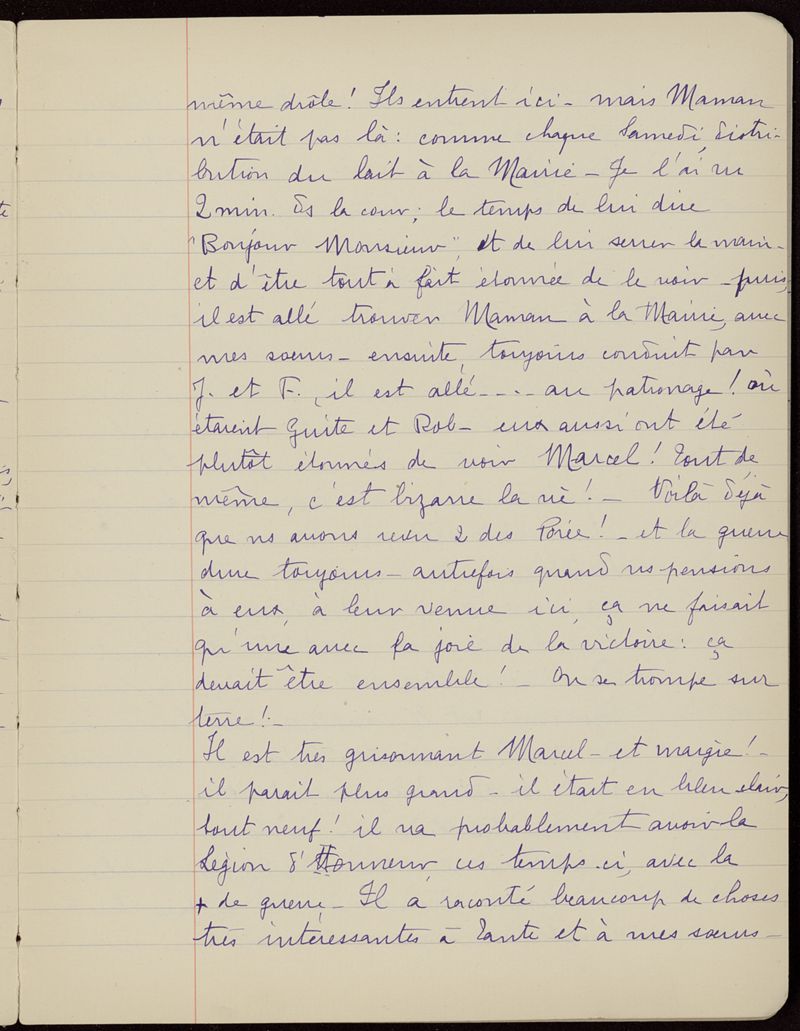 même drôle! Ils entrent ici – mais Maman
n'était pas là: comme chaque Samedi, distri-
bution du lait à la Mairie – Je l'ai vu
2 min. ds la cour; le temps de lui dire
"Bonjour Monsieur", et de lui serrer la main –
et d'être tout à fait étonnée de le voir – puis,
il est allé trouver Maman à la Mairie, avec
mes sœurs – ensuite, toujours conduit par
J. et F., il est allé - - - - au patronage! où
étaient Guite et Rob – eux aussi ont été
plutôt étonnés de voir Marcel! Tout de
même, c'est bizarre la vie! – Voilà déjà
que ns avons revu 2 des Porée! – et la guerre
dure toujours – autrefois quand ns pensions
à eux, à leur venue ici, ça ne faisait
qu'une avec la joie de la victoire: ça
devait être ensemble! – On se trompe sur
terre! –
Il est très grisonnant Marcel – et maigri! –
il paraît plus grand – il était en bleu clair,
tout neuf! il va probablement avoir la
Légion d'Honneur, ces temps-ci, avec la
+ de guerre – Il a raconté beaucoup de choses
très intéressantes à Tante et à mes sœurs –